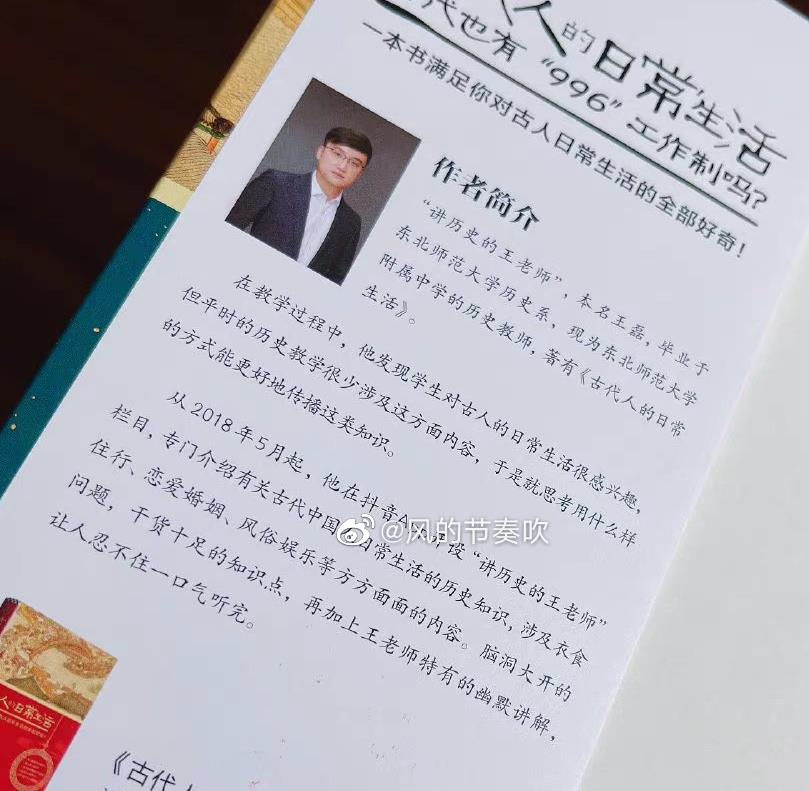 人的日常生活
代也有“996”工作制吗？
一本书满足你对古人日常生活的全部好奇！
作者简介
“讲历史的王老师”，本名王磊，毕业于
东北师范大学历史系，现为东北师范大学
附属中学的历史教师，著有《古代人的日常
生活》。
在教学过程中，他发现学生对古人的日常生活很感兴趣，
但平时的历史教学很少涉及这方面内容，于是就思考用什么样
的方式能更好地传播这类知识。
从2018年5月起，他在抖音App开设“讲历史的王老师”
栏目，专门介绍有关古代中国人日常生活的历史知识，涉及衣食
住行、恋爱婚姻、风俗娱乐等方方面面的内容。脑洞大开的
问题，干货十足的知识点，再加上王老师特有的幽默讲解，
让人忍不住一口气听完。
@风的节奏吹
人的日常生活
《古代人